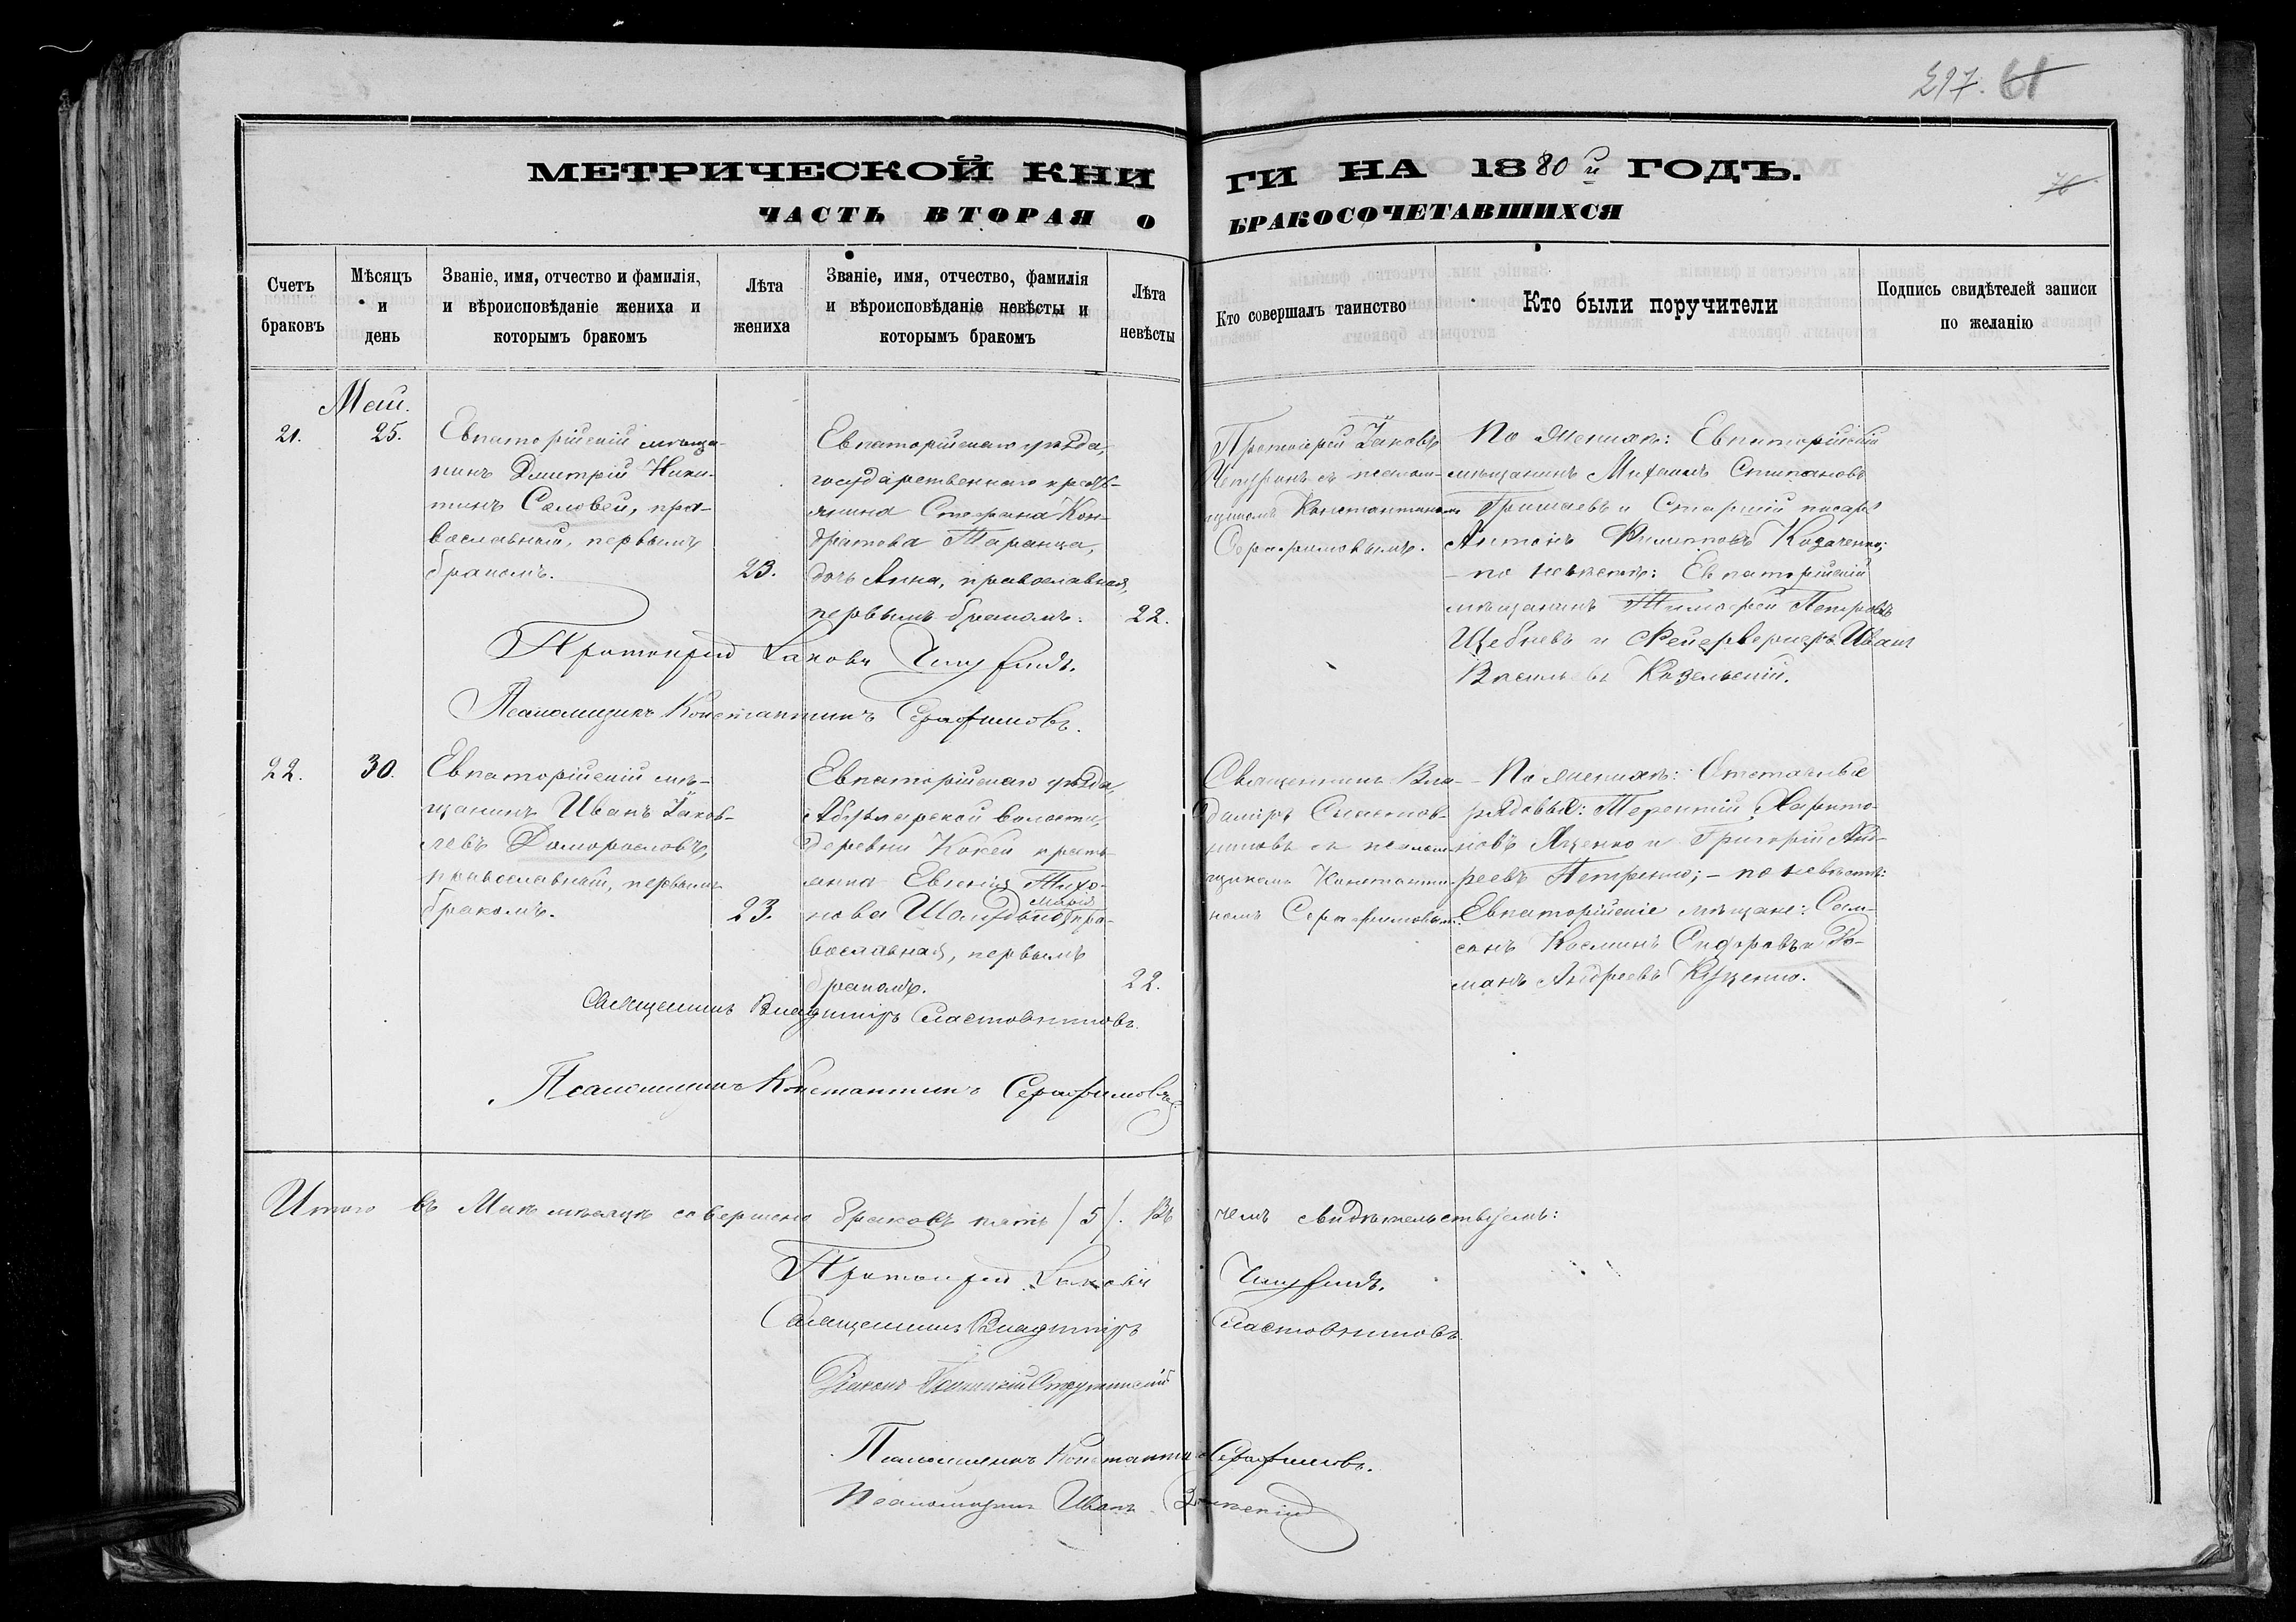 297. 61
МЕТРИЧЕСКОЙ КНИГИ НА 1880й ГОДЪ.
76
ЧАСТЬ ВТОРАЯ О БРАКОСОЧЕТАВШИХСЯ
Счетъ браковъ
Мѣсяцъ и день
Званіе, имя, отчество и фамилія,
и вѣроисповѣданіе жениха и
которымъ бракомъ
Лѣта жениха
Званіе, имя, отчество, фамилія
и вѣроисповѣданіе невѣсты и
которымъ бракомъ
Лѣта невѣсты
Кто совершалъ таинство
Кто были поручители
Подпись свидѣтелей записи
по желанію
Май.
21.
25.
Евпаторійскій мѣща-
нинъ Дмитрій Ники-
тинъ Соловей, пра-
вославный, первымъ
бракомъ.
23.
Евпаторійскаго уѣзда,
государственнаго кресть-
янина Стефана Кон-
дратова Таранца,
дочь Анна, православная,
первымъ бракомъ.
22.
Протоіерей Іаковъ
Чепуринъ съ псалом-
щикомъ Константиномъ
Серафимовымъ.
По женихѣ: Евпаторійскій
мѣщанинъ Михаилъ Степановъ
Гришаевъ и Старшій писарь
Антонъ Филиповъ Козаченко;
- по невѣстѣ: Евпаторійскій
мѣщанинъ Тимофей Петровъ
Щебневъ и Фейерверкеръ Иванъ
Васильевъ Козельскій.
Протоіерей Іаковъ Чепуринъ.
Псаломщикъ Константинъ Серафимовъ.
22.
30.
Евпаторійскій мѣ-
щанинъ Иванъ Іаков-
левъ Доморословъ,
православный, первымъ
бракомъ.
23.
Евпаторійскаго уѣзда,
Абузларской волости,
деревни Кокей кресть-
янка Евгенія Тихо-
вославная, первымъ
бракомъ.
22.
Священникъ Вла-
диміръ Сластов-
никовъ съ псалом-
щикомъ Константи-
номъ Серафимовым.
- По женихѣ: Отставные
рядовые: Терентій Харито-
новъ Яценко и Григорій Анд-
реевъ Петренко; - по невѣстѣ:
Евпаторійскіе мѣщане: Сам-
сонъ Косминъ Сидоровъ и Ро-
манъ Андреевъ Куценко.
Священникъ Владиміръ Сластовниковъ.
Псаломщикъ Константинъ Серафимовъ
Итого въ Маѣ мѣсяцѣ совершено браковъ пять /5/. Въ чемъ свидѣтельствуемъ:
Протоіерей Іаковъ Чепуринъ.
Священникъ Владиміръ Сластовниковъ
Діаконъ
Псаломщикъ Константинъ Серафимовъ.
Псаломщикъ Иванъ